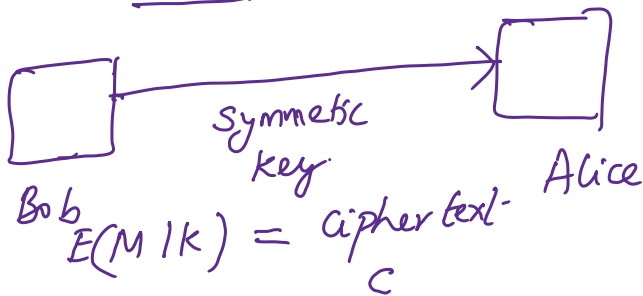 Symmetic
key.
Bob
Alice
E(M|K) = Ciphertext
C